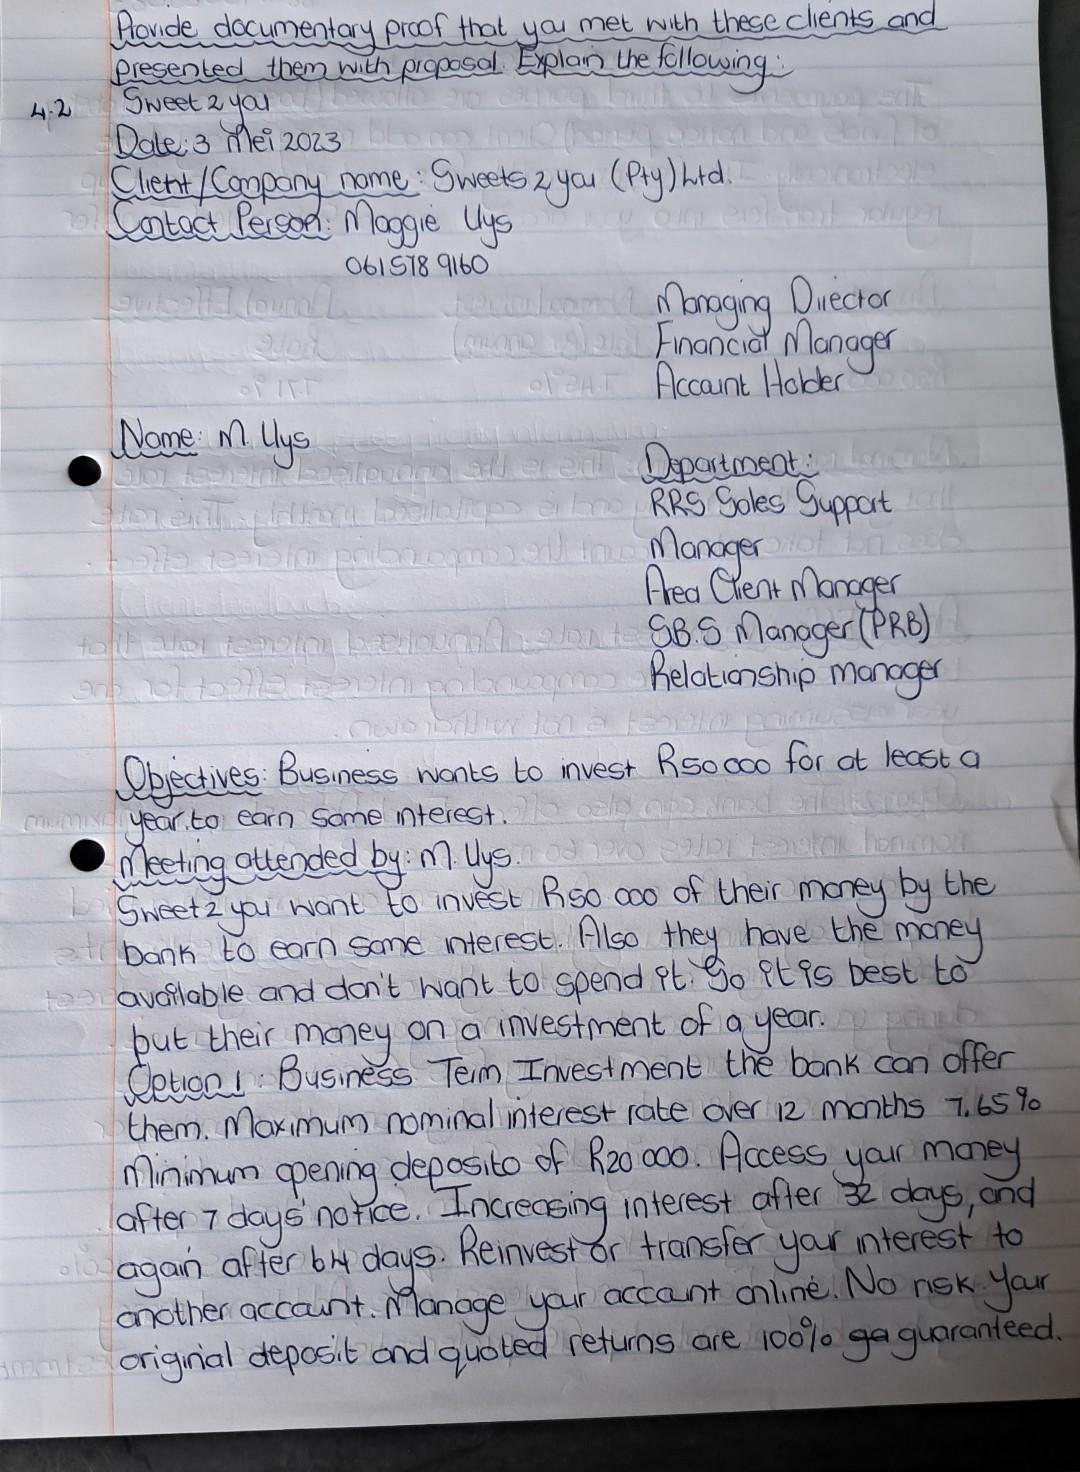 Provide documentary proof that you met with these clients and
presented them with proposal. Explain the following:
4.2 Sweet 2 you
Date: 3 Mei 2023
Client/Company name: Sweets 2 you (Pty) Ltd.
Contact Person: Maggie Uys
061 578 9160
Managing Director
Financial Manager
Account Holder
Name: M. Uys
Department:
RRS Sales Support
Manager
Area Client Manager
SB.S Manager (PRB)
Relationship manager
Objectives: Business wants to invest R50 000 for at least a
year. to earn some interest.
Meeting attended by: M. Uys.
Sweet 2 you want to invest R50 000 of their money by the
bank to earn some interest. Also they have the money
available and don't want to spend it. So it is best to
put their money on a investment of a year.
Option 1: Business Term Investment the bank can offer
them. Maximum nominal interest rate over 12 months 7.65%
Minimum opening deposito of R20 000. Access your money
after 7 days' notice. Increasing interest after 32 days, and
again after 64 days. Reinvest or transfer your interest to
another account. Manage your account online. No risk. Your
original deposit and quoted returns are 100% ga guaranteed.